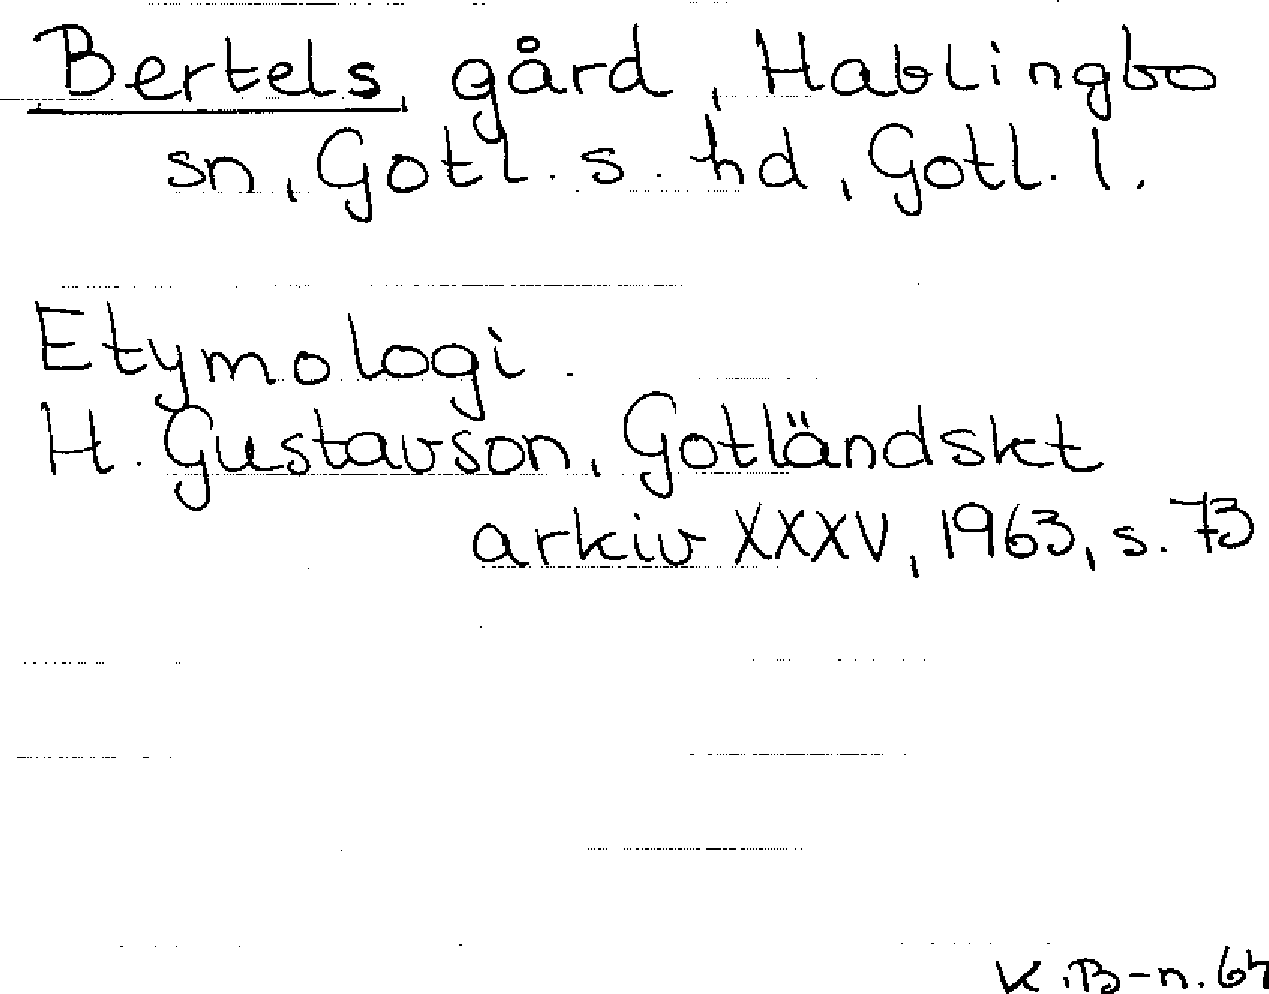 Bertels, gård, Hablingbo
sn, Gotl. s. hd, Gotl. l.
Etymologi.
H. Gustavson, Gotländskt
arkiv XXXV, 1963, s. 73
K.B-n. 64